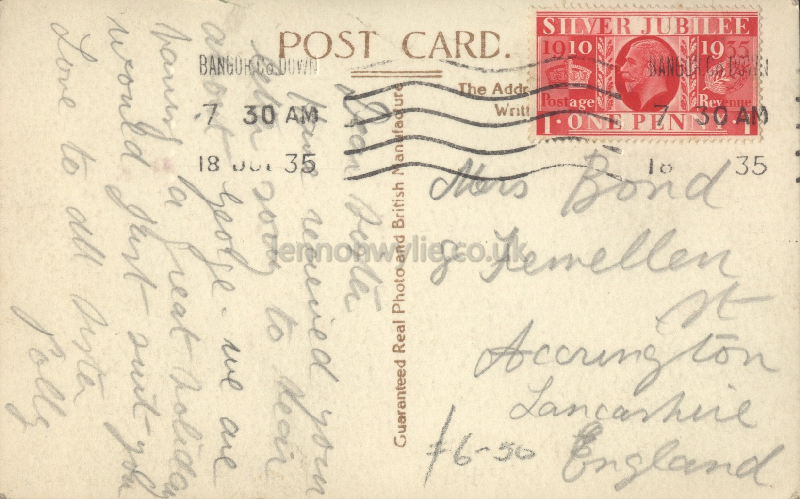 POST CARD.
SILVER JUBILEE
1910 1935
Postage Revenue
1 · ONE PENNY · 1
BANGOR Co DOWN
7 30 AM
18 JUL 35
BANGOR Co DOWN
7 30 AM
18 35
The Addr
Writt
Guaranteed Real Photo and British Manufacture
Dear Sister
I have received your
letter sorry to hear
about George - we are
having a great holiday
would just suit you
Love to all Sister
Polly
Mrs Bond
8 Lewellen
St
Accrington
Lancashire
England
/6-50
lennonwylie.co.uk